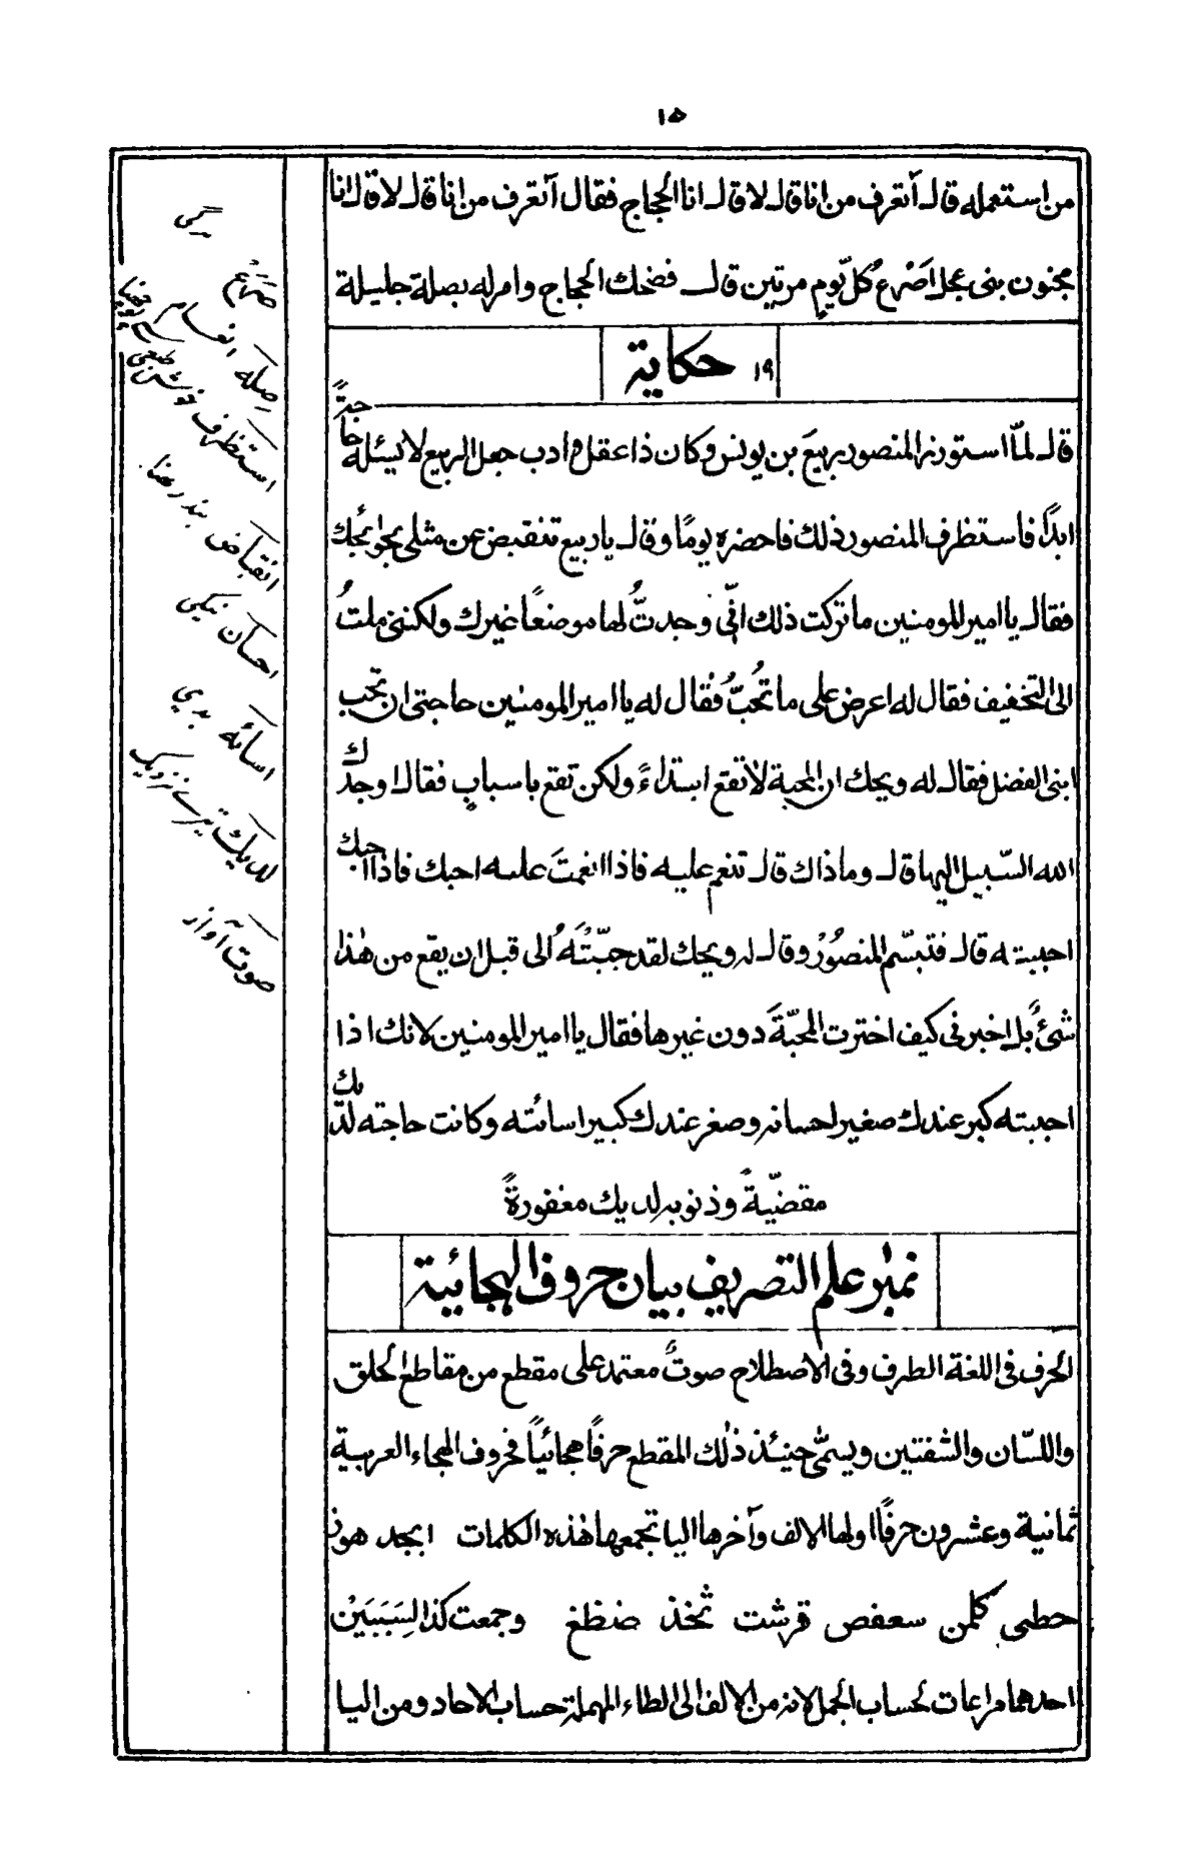 ۱۵
من استعمله قال أتعرف من انا قال لا قال انا الحجاج فقال أتعرف من انا قال لا قال انا
مجنون بنی عجل اَصْرع کُلّ یومٍ مرتین قال فضحك الحجاج وامر له بصلة جلیلة
۱۹ حکایة
قال لمّا استوزر المنصور ربیعَ بن یونس وکان ذا عقل و ادب جعل الربیع لا یسئله حاجةً
ابدًا فاستظرف المنصور ذلك فاحضره یومًا وقال یا ربیع تنقبض عن مثلی بحوائجك
فقال یا امیر المومنین ما ترکت ذلك انّی وجدتُّ لها موضعًا غیرك ولکننی ملتُ
الی التخفیف فقال له اعرض علی ما تُحِبُّ فقال له یا امیر المومنین حاجتی ان تحب
ابنی الفضل فقال له ویحك ان المحبة لا تقع ابتداءً ولکن تقع باسبابٍ فقال اوجدك
الله السّبیل الیها قال وما ذاك قال تنعم علیه فاذا انعمتَ علیه احبك فاذا احبك
احببته قال فتبسّم المنصُوْر وقال له ویحك لقد حبّبْتَهُ الی قبل ان یقع من هٰذا
شیٌٔ بل اخبرنی کیف اخترت المحبّةَ دون غیرها فقال یا امیر المومنین لانك اذا
احببته کبر عندك صغیر احسانه وصغر عندك کبیر اسائته وکانت حاجته لدیك
مقضیّةً وذنوبه لدیك مغفورةً
نمبر۱ علم التصریف بیان حروف الهجائیة
الحرف فی اللغة الطرف وفی الاصطلاح صوتٌ معتمد علی مقطع من مقاطع الحلق
واللسّان والشفتین ویسمّٰی حینئذ ذٰلك المقطع حرفًا هجائیاً فحروف الهجاء العربیة
ثمانیة وعشرون حرفًا اولها الالف وآخرها الیا تجمعها هٰذه الکلمات ابجد هوز
حطی کلمن سعفص قرشت ثخذ ضظغ وجمعت کذا لِسَبَبَیْن
احدهما مراعات لحساب الجمل لانه من الالف الی الطاء المهملة حساب الاحاد ومن الیا
صَرَعْ
صِله انعام
استظرف
انقباض
احسان نیکی
اسائه بدی
لدیك تیرے نزدیك
صوت آواز